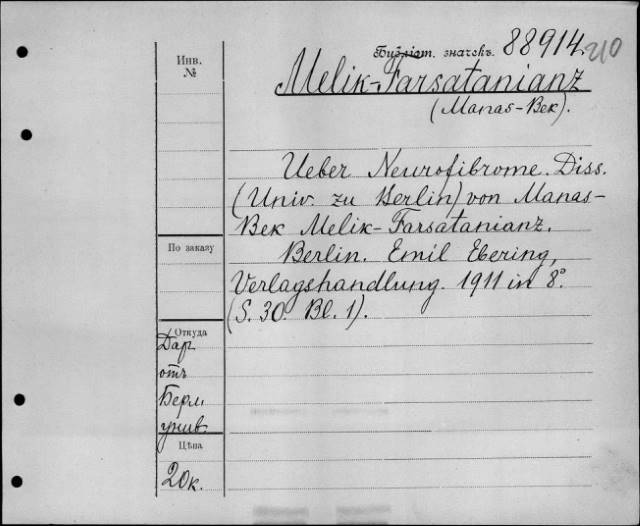 Библіот. значекъ. 88914 210
Инв.
№
Melik-Farsatanianz
(Manas-Bek).
Ueber Neurofibrome. Diss.
(Univ. zu Berlin) von Manas-
Bek Melik-Farsatanianz.
Berlin. Emil Ebering,
Verlagshandlung. 1911 in 8°.
(S. 30. Bl. 1).
По заказу
Откуда
Дар
отъ
Берл
унив.
Цѣна
20к.